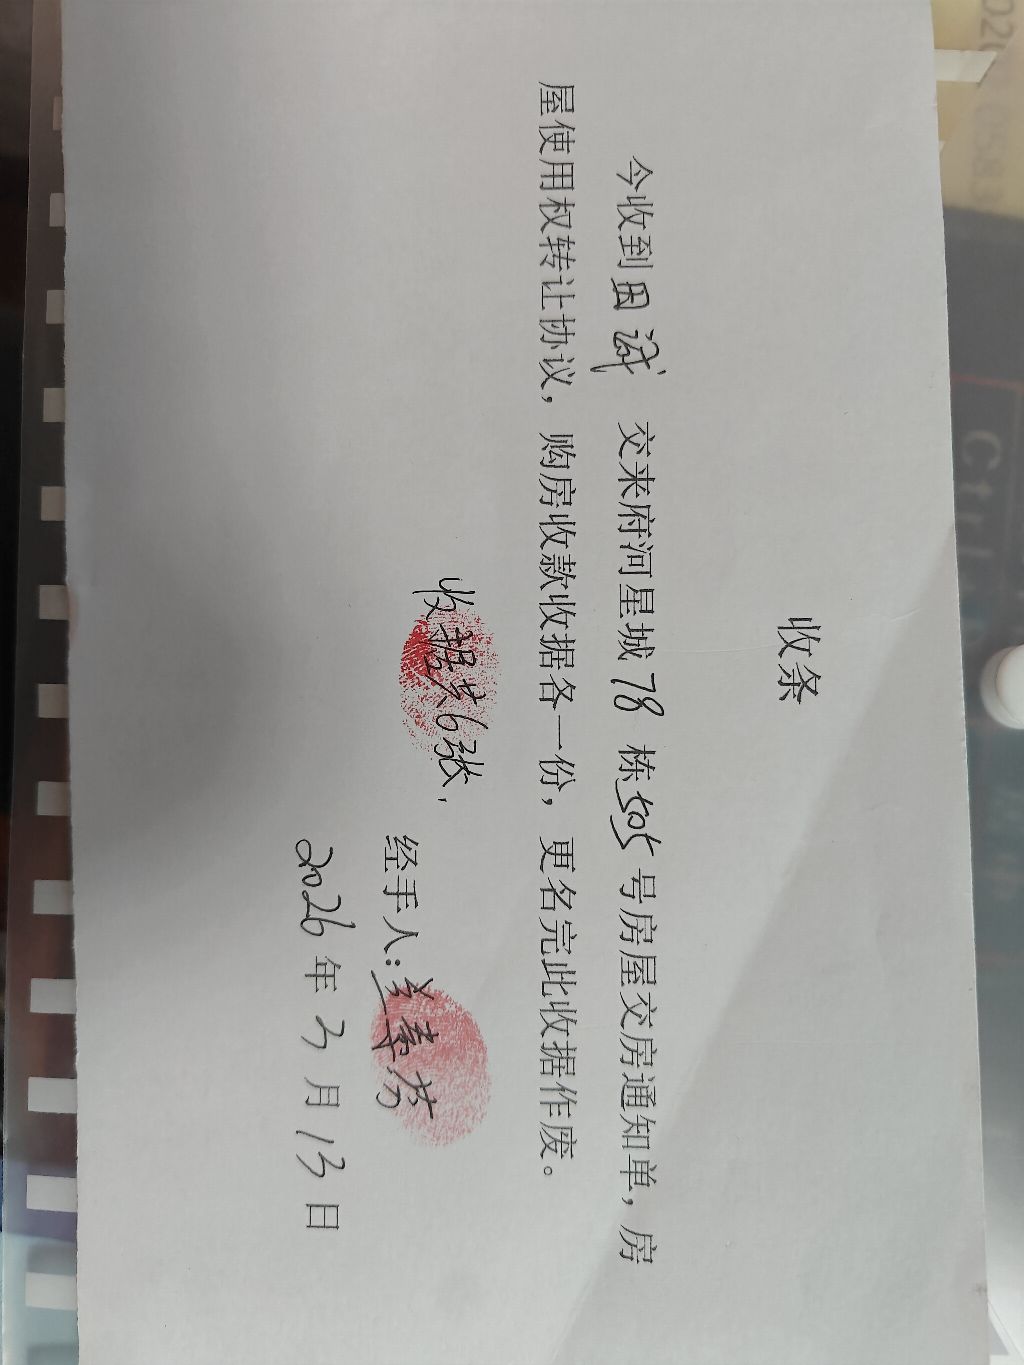 收条
今收到田诚 交来府河星城78栋505号房屋交房通知单，房
屋使用权转让协议，购房收款收据各一份，更名完此收据作废。
收据共6张，
经手人：兰菊芬
2026年3月13日
202
Ctrl